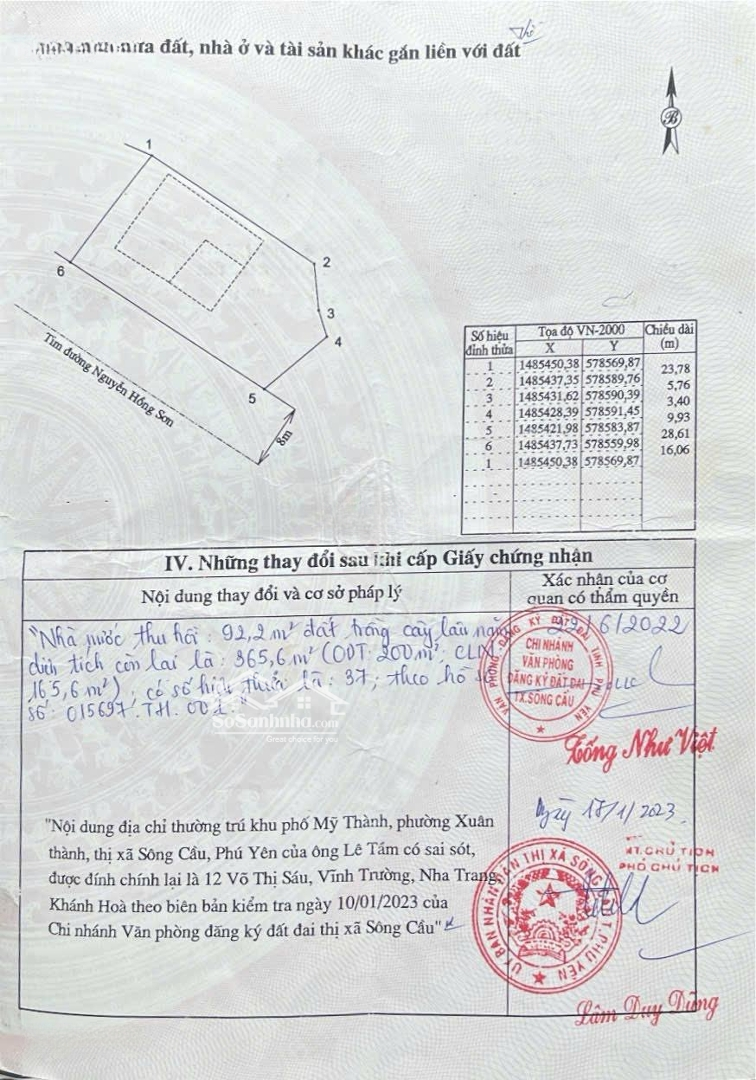 đất, nhà ở và tài sản khác gắn liền với đất
B
1
2
3
4
5
6
Tim đường Nguyễn Hồng Sơn
8m
Số hiệu đỉnh thửa Tọa độ VN-2000 Chiều dài (m)
X Y
1 1485450,38 578569,87
23,78
2 1485437,35 578589,76
5,76
3 1485431,62 578590,39
3,40
4 1485428,39 578591,45
9,93
5 1485421,98 578583,87
28,61
6 1485437,73 578559,98
16,06
1 1485450,38 578569,87
IV. Những thay đổi sau khi cấp Giấy chứng nhận
Nội dung thay đổi và cơ sở pháp lý
Xác nhận của cơ
quan có thẩm quyền
"Nhà nước thu hồi: 92,2 m² đất trồng cây lâu năm
diện tích còn lại là: 365,6 m² (ODT: 200 m², CLN
165,6 m²), có số hiệu thửa là: 37; theo hồ sơ
số: 015697.TH.001"
22/6/2022
VĂN PHÒNG ĐĂNG KÝ ĐẤT ĐAI TỈNH PHÚ YÊN
CHI NHÁNH
VĂN PHÒNG
ĐĂNG KÝ ĐẤT ĐAI
TX.SÔNG CẦU
Tống Như Việt
SoSanhnha.com
Great choice for you
"Nội dung địa chỉ thường trú khu phố Mỹ Thành, phường Xuân
thành, thị xã Sông Cầu, Phú Yên của ông Lê Tấm có sai sót,
được đính chính lại là 12 Võ Thị Sáu, Vĩnh Trường, Nha Trang,
Khánh Hoà theo biên bản kiểm tra ngày 10/01/2023 của
Chi nhánh Văn phòng đăng ký đất đai thị xã Sông Cầu"
Ngày 17/1/2023
KT.CHỦ TỊCH
PHÓ CHỦ TỊCH
ỦY BAN NHÂN DÂN THỊ XÃ SÔNG CẦU T.PHÚ YÊN
Lâm Duy Dũng